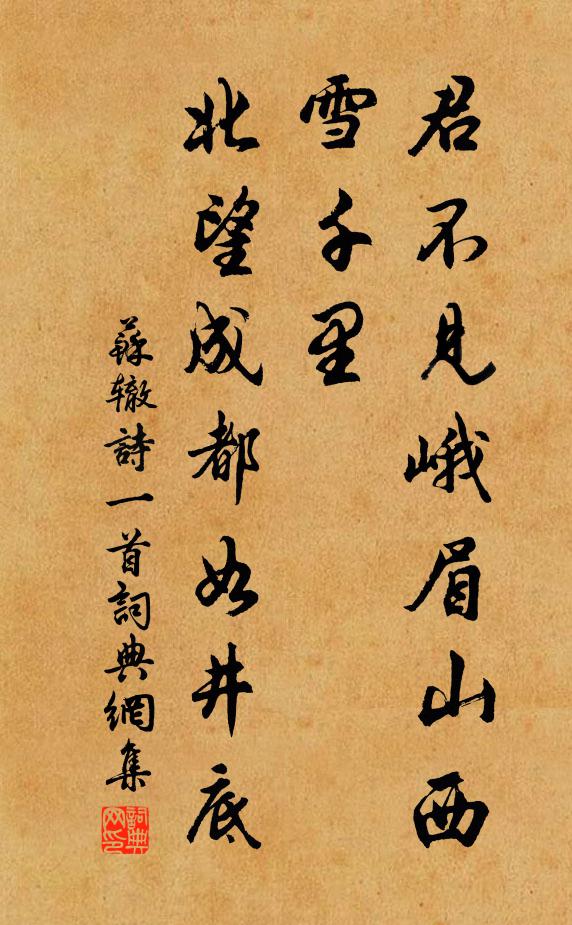 君不見峨眉山西
雪千里
北望成都如井底
蘇轍詩一首詞典網集
詞典
网印